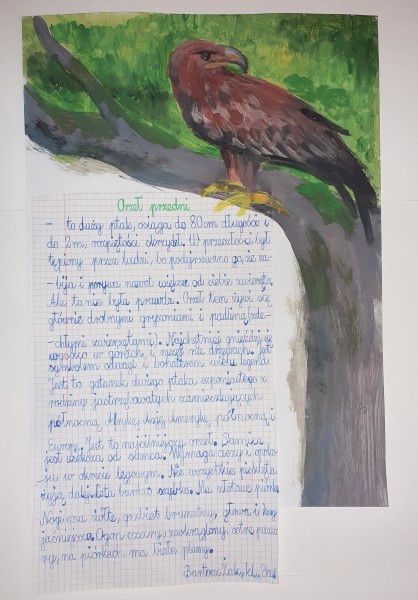 Orzeł przedni
- to duży ptak, osiąga do 80 cm długości i
do 2 m rozpiętości skrzydeł. W przeszłości był
tępiony przez ludzi, bo podejrzewano go, że za-
-bija i porywa nawet większe od siebie zwierzęta.
Ale to nie była prawda. Orzeł ten żywi się
głównie drobnymi gryzoniami i padliną (zde-
-chłymi zwierzętami). Najchętniej gnieździ się
wysoko w górach i na drzewach. Jest
symbolem odwagi i bohaterem wielu legend.
Jest to gatunek dużego ptaka szponiastego z
rodziny jastrzębiowatych zamieszkujących
północną Afrykę, Azję, Amerykę północną i
Europę. Jest to najsilniejszy orzeł. Samica
jest większa od samca. Wymaga ciszy i spoko-
-ju w okresie lęgowym. Nie wszystkie pisklęta
żyją, dalej lata bardzo szybko. Ma złotawe pióra
Nogi ma żółte, grzbiet brunatny, głowa i
jaśniejsze. Ogon czarny, zaokrąglony, ostre pazu-
ry, na piórkach ma białe plamy.
Bartosz